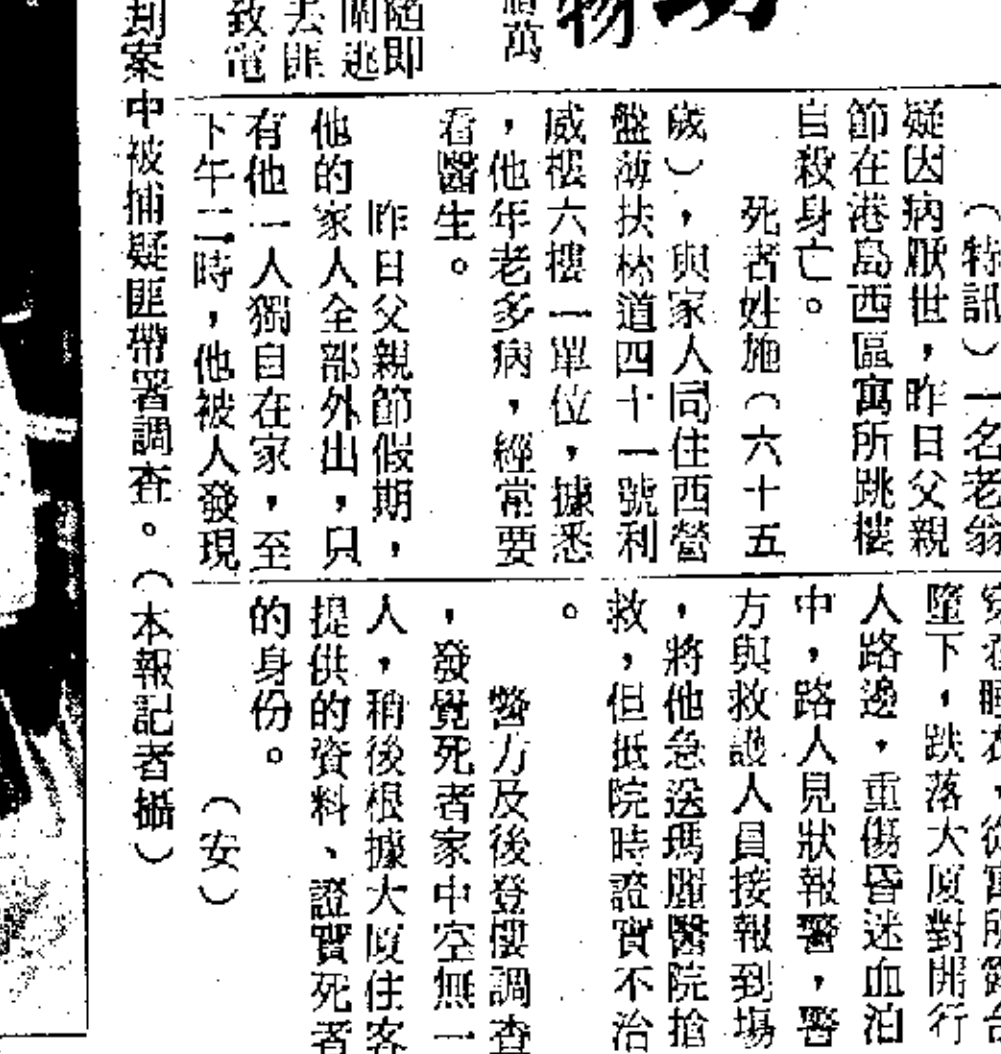 物
萬
隨即
逃
去匪
致電
劫案中被捕疑匪帶署調查。（本報記者攝）
（特訊）一名老翁
疑因病厭世，昨日父親
節在港島西區寓所跳樓
自殺身亡。
死者姓施（六十五
歲），與家人同住西營
盤薄扶林道四十一號利
威樓六樓一單位，據悉
，他年老多病，經常要
看醫生。
昨日父親節假期，
他的家人全部外出，只
有他一人獨自在家，至
下午二時，他被人發現
穿在睡衣，從寓所露台
墮下，跌落大厦對開行
人路邊，重傷昏迷血泊
中，路人見狀報警，警
方與救護人員接報到場
，將他急送瑪麗醫院搶
救，但抵院時證實不治
。
警方及後登樓調查
，發覺死者家中空無一
人，稍後根據大厦住客
提供的資料、證實死者
的身份。
（安）